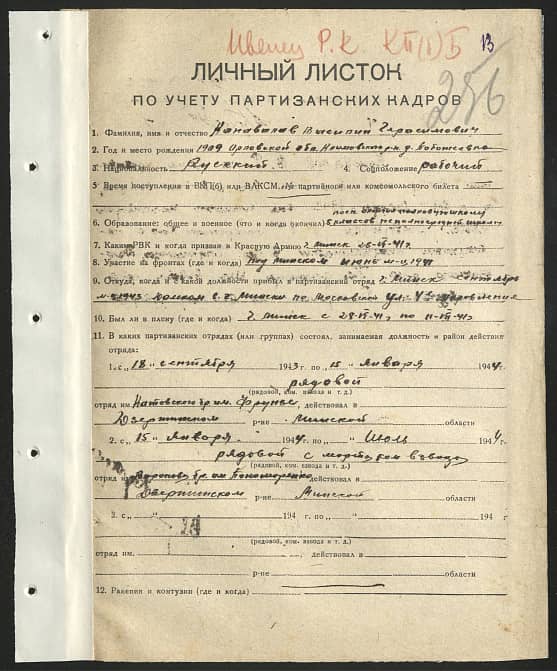 Ивенец Р.К. КП(б)Б 13
256
ЛИЧНЫЙ ЛИСТОК
ПО УЧЕТУ ПАРТИЗАНСКИХ КАДРОВ
1. Фамилия, имя и отчество Канавалов Василий Герасимович
2. Год и место рождения 1909 Орловской обл.
3. Национальность Русский 4. Соцположение рабочий
5. Время поступления в ВКП(б) или ВЛКСМ, № партийного или комсомольского билета
6. Образование: общее и военное (что и когда окончил) 5 классов школы
7. Каким РВК и когда призван в Красную Армию г. Минск 26-VI-41г.
8. Участие на фронтах (где и когда) Под Минском июнь м-ц 1941
9. Откуда, когда и в какой должности прибыл в партизанский отряд г. Минск сентябрь
м-ц 1943 г. Минска по Московской ул.
10. Был ли в плену (где и когда) г. Минск с 28-VI-41, по 11-VII-41г.
11. В каких партизанских отрядах (или группах) состоял, занимаемая должность и район действия
отряда:
1. с „18" сентября 1943 г. по „15" января 1944 г.
рядовой
(рядовой, ком. взвода и т. д.)
отряд им. бр. им. Фрунзе, действовал в
Дзержинском р-не Минской области
2. с „15" января 1944 г. по „ " Июль 1944 г.
рядовой с взвода
(рядовой, ком. взвода и т. д.)
отряд им. бр. им. Пономаренко действовал в
Дзержинском р-не Минской области
3. с „ " 194 г. по „ " 194 г
(рядовой, ком. взвода и т. д.)
отряд им. , действовал в
р-не области
12. Ранения и контузии (где и когда)